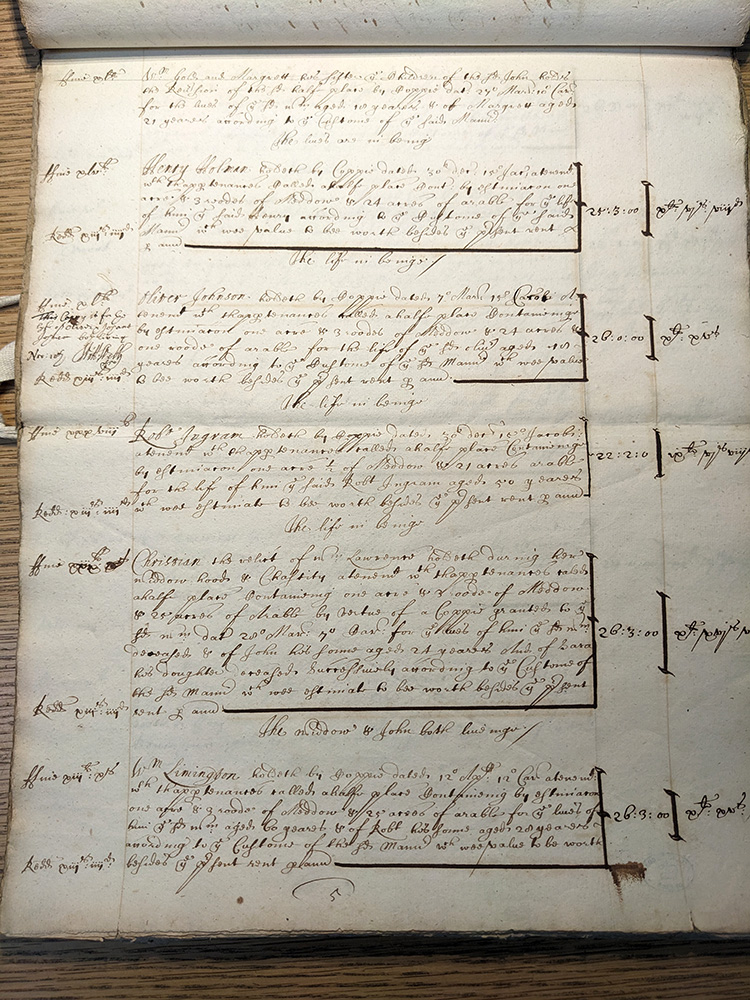 Wm Gold and Margrett his sister ye Children of the sd John holdes
the Revsion of the sd half place by Coppie dat 27o Mar: 10 Car
for the lives of ye sd Wm Aged 18 yeares & of Margrett aged
21 yeares according to ye Custome of ye said Mannr
The lives are in being
Henry Holman holdeth by Coppie dated 30o Decr 15o Jac: a tenemt
wth thappertenances called a half place Cont by estimacon one
acre & 3 roodes of Meddow & 24 acres of arable for ye life
of him ye said Henry according to ye Custome of ye said
Mannr wch wee value to bee worth besides ye psent rent
p ann
25:3:00
Redd xiijs iiijd
The life in being
Oliver Johnson holdeth by Coppie dated 7o Mar: 15o Jacobi a
tenemt wth thappertenances called a half place Containing
by estimacon one acre & 3 roodes of Meddow & 24 acres &
one roode of arable for the life of ye sd Oliver aged 48
yeares according to ye Custome of ye sd Mannr wch wee value
to bee worth besides ye psent rent p ann
26:0:00
Redd xiijs iiijd
The life in being
Robt Ingram holdeth by Coppie dated 30o Decr 15o Jacobi
a tenemt wth thappertenances called a half place Containing
by estimacon one acre ½ of Meddow & 21 acres arable
for the life of him ye said Robt Ingram aged 50 yeares
wch wee estimate to bee worth besides ye psent rent p ann
22:2:0
Redd: xiijs iiijd
The life in being
Christian the relict of Wm Lawrence holdeth during her
widdow hood & Chastity a tenemt wth thappertenances called
a half place Containing one acre & 2 roodes of Meddow
& 25 acres of Arable by vertue of a Coppie granted to ye
sd Wm dat 20o Mar: 7o Car: for ye lives of him ye sd Wm
deceased & of John his sonne aged 24 yeares and of Sara
his daughter deceased successively according to ye Custome of
the sd Mannr wch wee estimate to bee worth besides ye psent
rent p ann
26:3:00
Redd xiijs iiijd
The widdow & John both liveinge
Wm Limington holdeth by Coppie dated 12o Apr: 12o Car: a tenemt
wth thappertenances called a half place Containing by estimacon
one acre & 3 roodes of Meddow & 25 acres of arable for ye lives of
him ye sd Wm aged 60 yeares & of Robt his sonne aged 28 yeares
according to ye Custome of the sd Mannr wch wee value to be worth
besides ye psent rent p ann
26:3:00
Redd xiijs iiijd
5